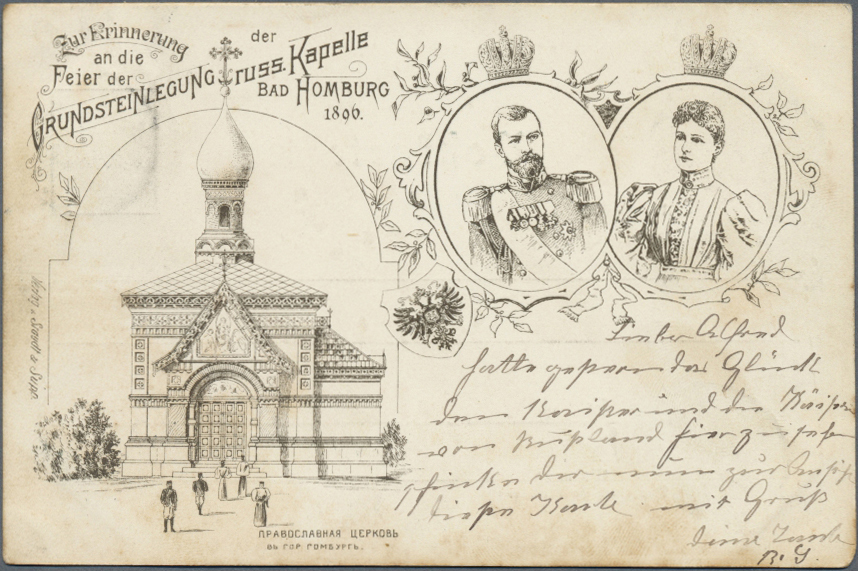 Zur Erinnerung
an die
Feier der
GRUNDSTEINLEGUNG
der
russ. Kapelle
BAD HOMBURG
1896.
Lieber Alfred
hatte gestern das Glück
den Kaiser und die Kaiserin
von Rußland hier zu sehen
schicke dir nun zur Ansicht
diese Karte mit Gruß
deine Tante
B. G.
ПРАВОСЛАВНАЯ ЦЕРКОВЬ
ВЬ ГОР. ГОМБУРГѢ.